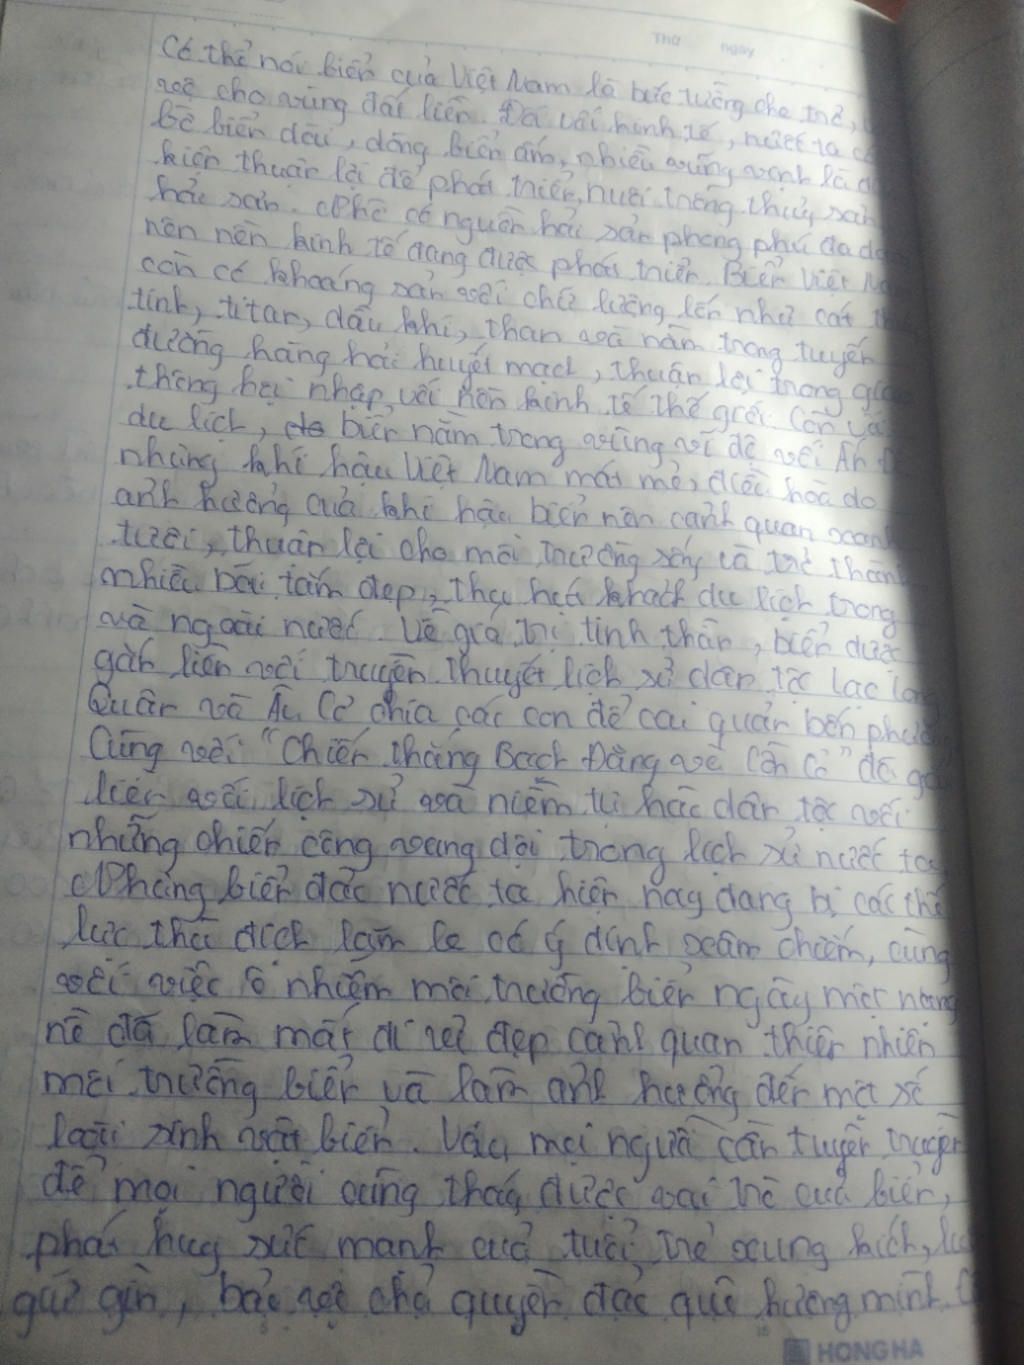 Thứ ngày
Có thể nói biển của Việt Nam là bức tường che chở,
vệ cho vùng đất liền. Đối với kinh tế, nước ta có
bờ biển dài, dòng biển ấm, nhiều vũng vịnh là
kiện thuận lợi để phát triển, nuôi trồng thủy sản
hải sản. Nhờ có nguồn hải sản phong phú đa
nên nền kinh tế đang được phát triển. Biển Việt
còn có khoáng sản với chữ lường lớn như cát
tinh, titan, dầu khí, than và nằm trong tuyến
đường hàng hải huyết mạch, thuận lợi trong
thông hội nhập với nền kinh tế thế giới. Còn về
du lịch, biển nằm trong vùng vĩ độ với Ấn
nhưng khí hậu Việt Nam mát mẻ, điều hoà do
ảnh hưởng của khí hậu biển nên cảnh quan xanh
tươi, thuận lợi cho môi trường sống và trở thành
nhiều bãi tắm đẹp, thu hút khách du lịch trong
và ngoài nước. Về giá trị tinh thần, biển được
gắn liền với truyền thuyết lịch sử dân tộc Lạc Long
Quân và Âu Cơ chia các con để cai quản bốn phương
Cùng với "Chiến thắng Bạch Đằng và Cần Cỏ" đã gắn
liền với lịch sử và niềm tự hào dân tộc với
những chiến công vang dội trong lịch sử nước ta
Nhưng biển đảo nước ta hiện nay đang bị các thế
lực thù địch lăm le có ý định xâm chiếm, cùng
với việc ô nhiễm môi trường biển ngày một nặng
nề đã làm mất đi vẻ đẹp cảnh quan thiên nhiên
môi trường biển và làm ảnh hưởng đến một số
loài sinh vật biển. Vậy mọi người cần tuyên truyền
để mọi người cùng thấy được vai trò của biển,
phát huy sức mạnh của tuổi trẻ xung kích,
giữ gìn, bảo vệ chủ quyền đảo quê hương mình.
HONG HA